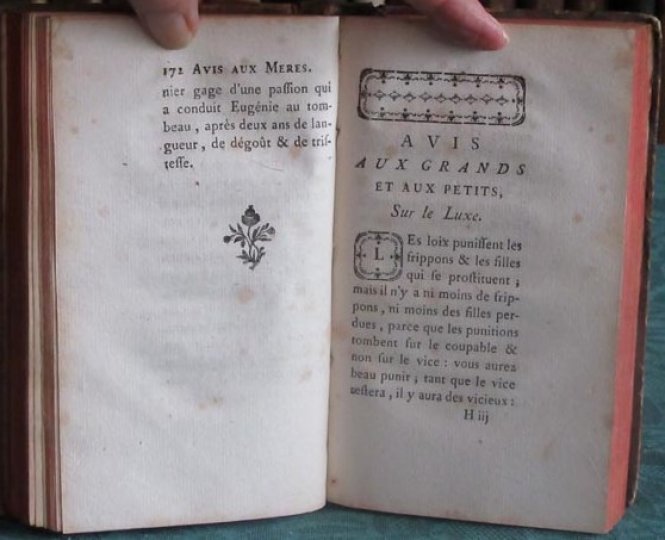 172 AVIS AUX MERES.
nier gage d'une paſſion qui
a conduit Eugénie au tom-
beau, après deux ans de lan-
gueur, de dégoût & de triſ-
teſſe.
AVIS
AUX GRANDS
ET AUX PETITS,
Sur le Luxe.
LEs loix puniſſent les
frippons & les filles
qui ſe proſtituent ;
mais il n'y a ni moins de frip-
pons, ni moins des filles per-
dues, parce que les punitions
tombent ſur le coupable &
non ſur le vice : vous aurez
beau punir ; tant que le vice
reſtera, il y aura des vicieux :
H iij